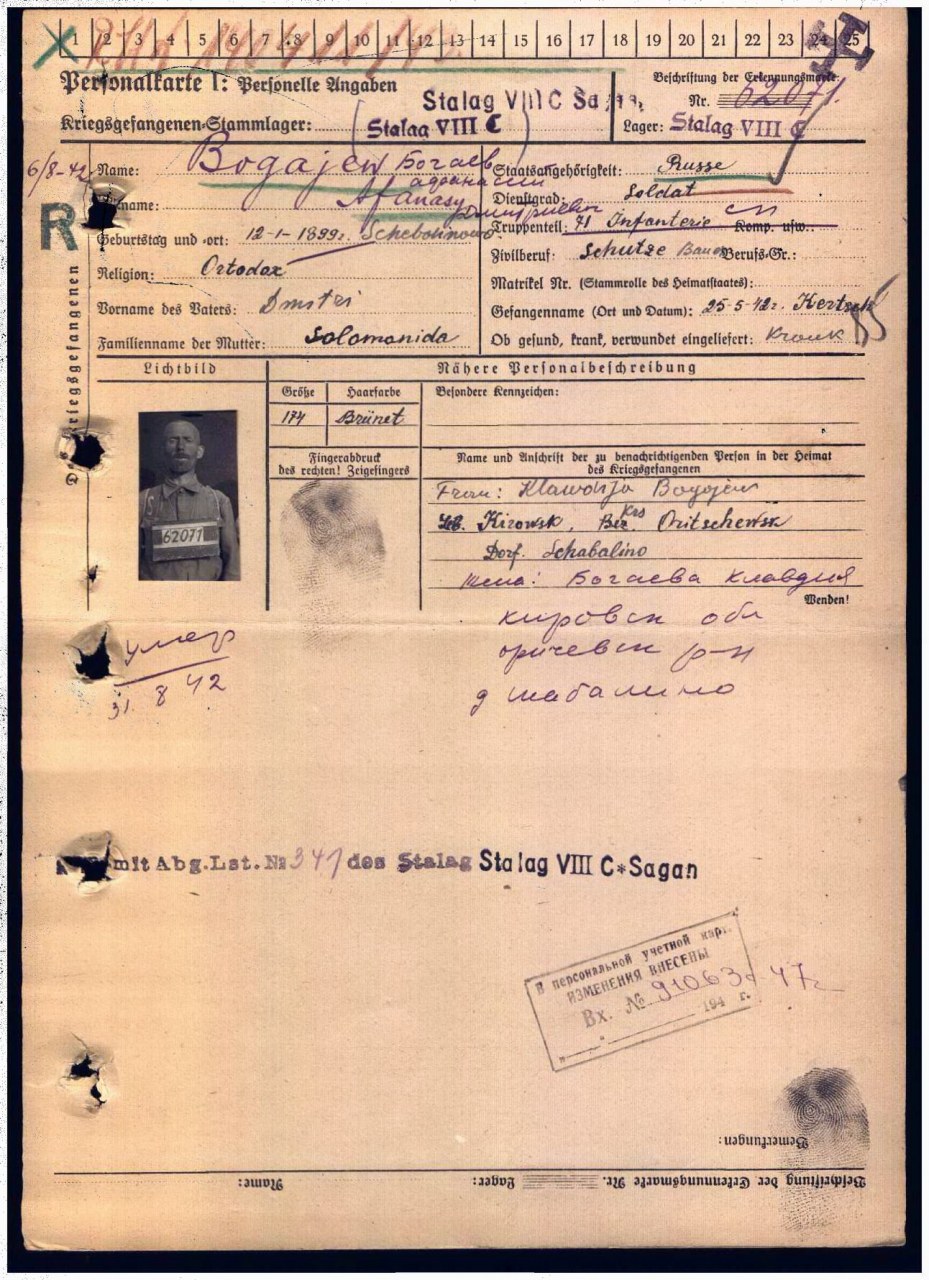 1 2 3 4 5 6 7 8 9 10 11 12 13 14 15 16 17 18 19 20 21 22 23 24 25
Personalkarte I: Personelle Angaben
Beschriftung der Erkennungsmarke
Stalag VIII C Sagan
Nr. 62071
Kriegsgefangenen-Stammlager: Stalag VIII C
Lager: Stalag VIII C
6/8-42
Name: Bogajew Богаев
Staatsangehörigkeit: Russe
R
Vorname: Afanasy
Dienstgrad: Soldat
Дмитриевич
Truppenteil: 71 Infanterie Komp. usw.:
Geburtstag und -ort: 12-1-1899г. Schebolinowo
Zivilberuf: Schutze Bauer Berufs-Gr.:
Religion: Ortodox
Matrikel Nr. (Stammrolle des Heimatstaates):
Vorname des Vaters: Dmitri
Gefangenname (Ort und Datum): 25-5-42г. Kertsch
Familienname der Mutter: Solomanida
Ob gesund, krank, verwundet eingeliefert: Krank
Des Kriegsgefangenen
Lichtbild
Nähere Personalbeschreibung
Größe
Haarfarbe
Besondere Kennzeichen:
174
Brünet
Fingerabdruck
des rechten! Zeigefingers
Name und Anschrift der zu benachrichtigenden Person in der Heimat
des Kriegsgefangenen
Frau: Klawdija Bogajew
62071
Geb. Kirowsk, Krs Oritschewsk
Dorf. Schabalino
жена: Богаева Клавдия
Wenden!
кировск обл
оричевск р-н
д шабалино
умер
31. 8 42
mit Abg.Lst. № 341 des Stalag Stalag VIII C*Sagan
В персональной учетной карт.
ИЗМЕНЕНИЯ ВНЕСЕНЫ
Вх. № 91063с 47г
194 г.
Bemerkungen:
Beschriftung der Erkennungsmarke Nr.
Lager:
Name: